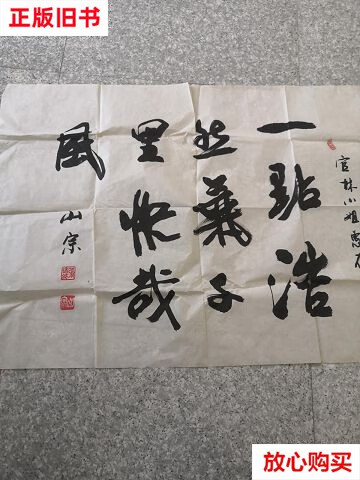 正版旧书
官林小姐惠存
一點浩
然氣千
里快哉
風
山宗
放心购买